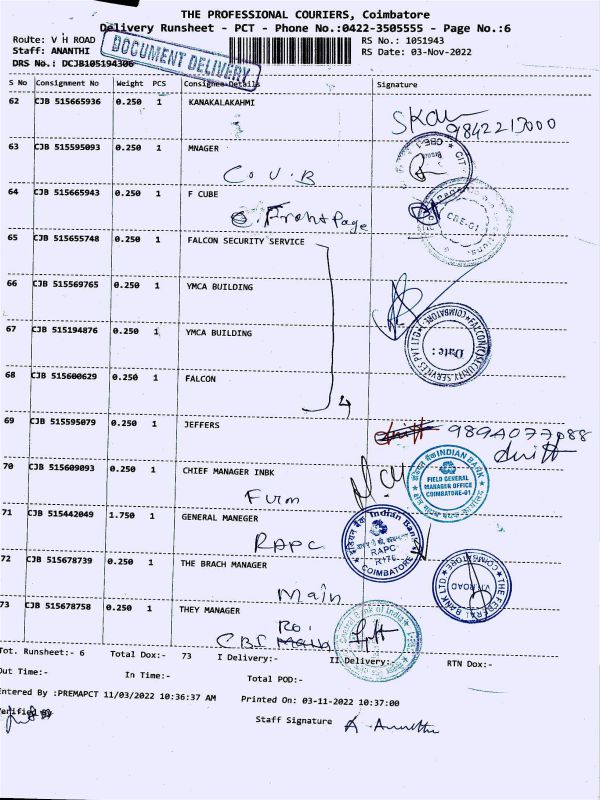 THE PROFESSIONAL COURIERS, Coimbatore
Delivery Runsheet - PCT - Phone No.:0422-3505555 - Page No.:6
Route: V H ROAD RS No.: 1051943
Staff: ANANTHI RS Date: 03-Nov-2022
DOCUMENT DELIVERY
DRS No.: DCJB105194306
S No Consignment No Weight PCS Consignee Details Signature
62 CJB 515665936 0.250 1 KANAKALAKAHMI
9842213000
63 CJB 515595093 0.250 1 MNAGER
C.U.B
64 CJB 515665943 0.250 1 F CUBE
Front page
CBE-G1
65 CJB 515655748 0.250 1 FALCON SECURITY SERVICE
66 CJB 515569765 0.250 1 YMCA BUILDING
67 CJB 515194876 0.250 1 YMCA BUILDING
FALCON SECURITY SERVICES PVT LTD COIMBATORE
Date:
68 CJB 515600629 0.250 1 FALCON
4
69 CJB 515595079 0.250 1 JEFFERS
70 CJB 515609093 0.250 1 CHIEF MANAGER INBK
INDIAN BANK
FIELD GENERAL
MANAGER OFFICE
COIMBATORE-01
71 CJB 515442049 1.750 1 GENERAL MANEGER
RAPC
Indian Bank
RAPC
COIMBATORE
72 CJB 515678739 0.250 1 THE BRACH MANAGER
Main
THE FEDERAL BANK LTD.
V.H. ROAD
73 CJB 515678758 0.250 1 THEY MANAGER
Ro.
CBI
Central Bank of India
Tot. Runsheet:- 6 Total Dox:- 73 I Delivery:- II Delivery:- RTN Dox:-
Out Time:- In Time:- Total POD:-
Entered By :PREMAPCT 11/03/2022 10:36:37 AM Printed On: 03-11-2022 10:37:00
Verified Staff Signature